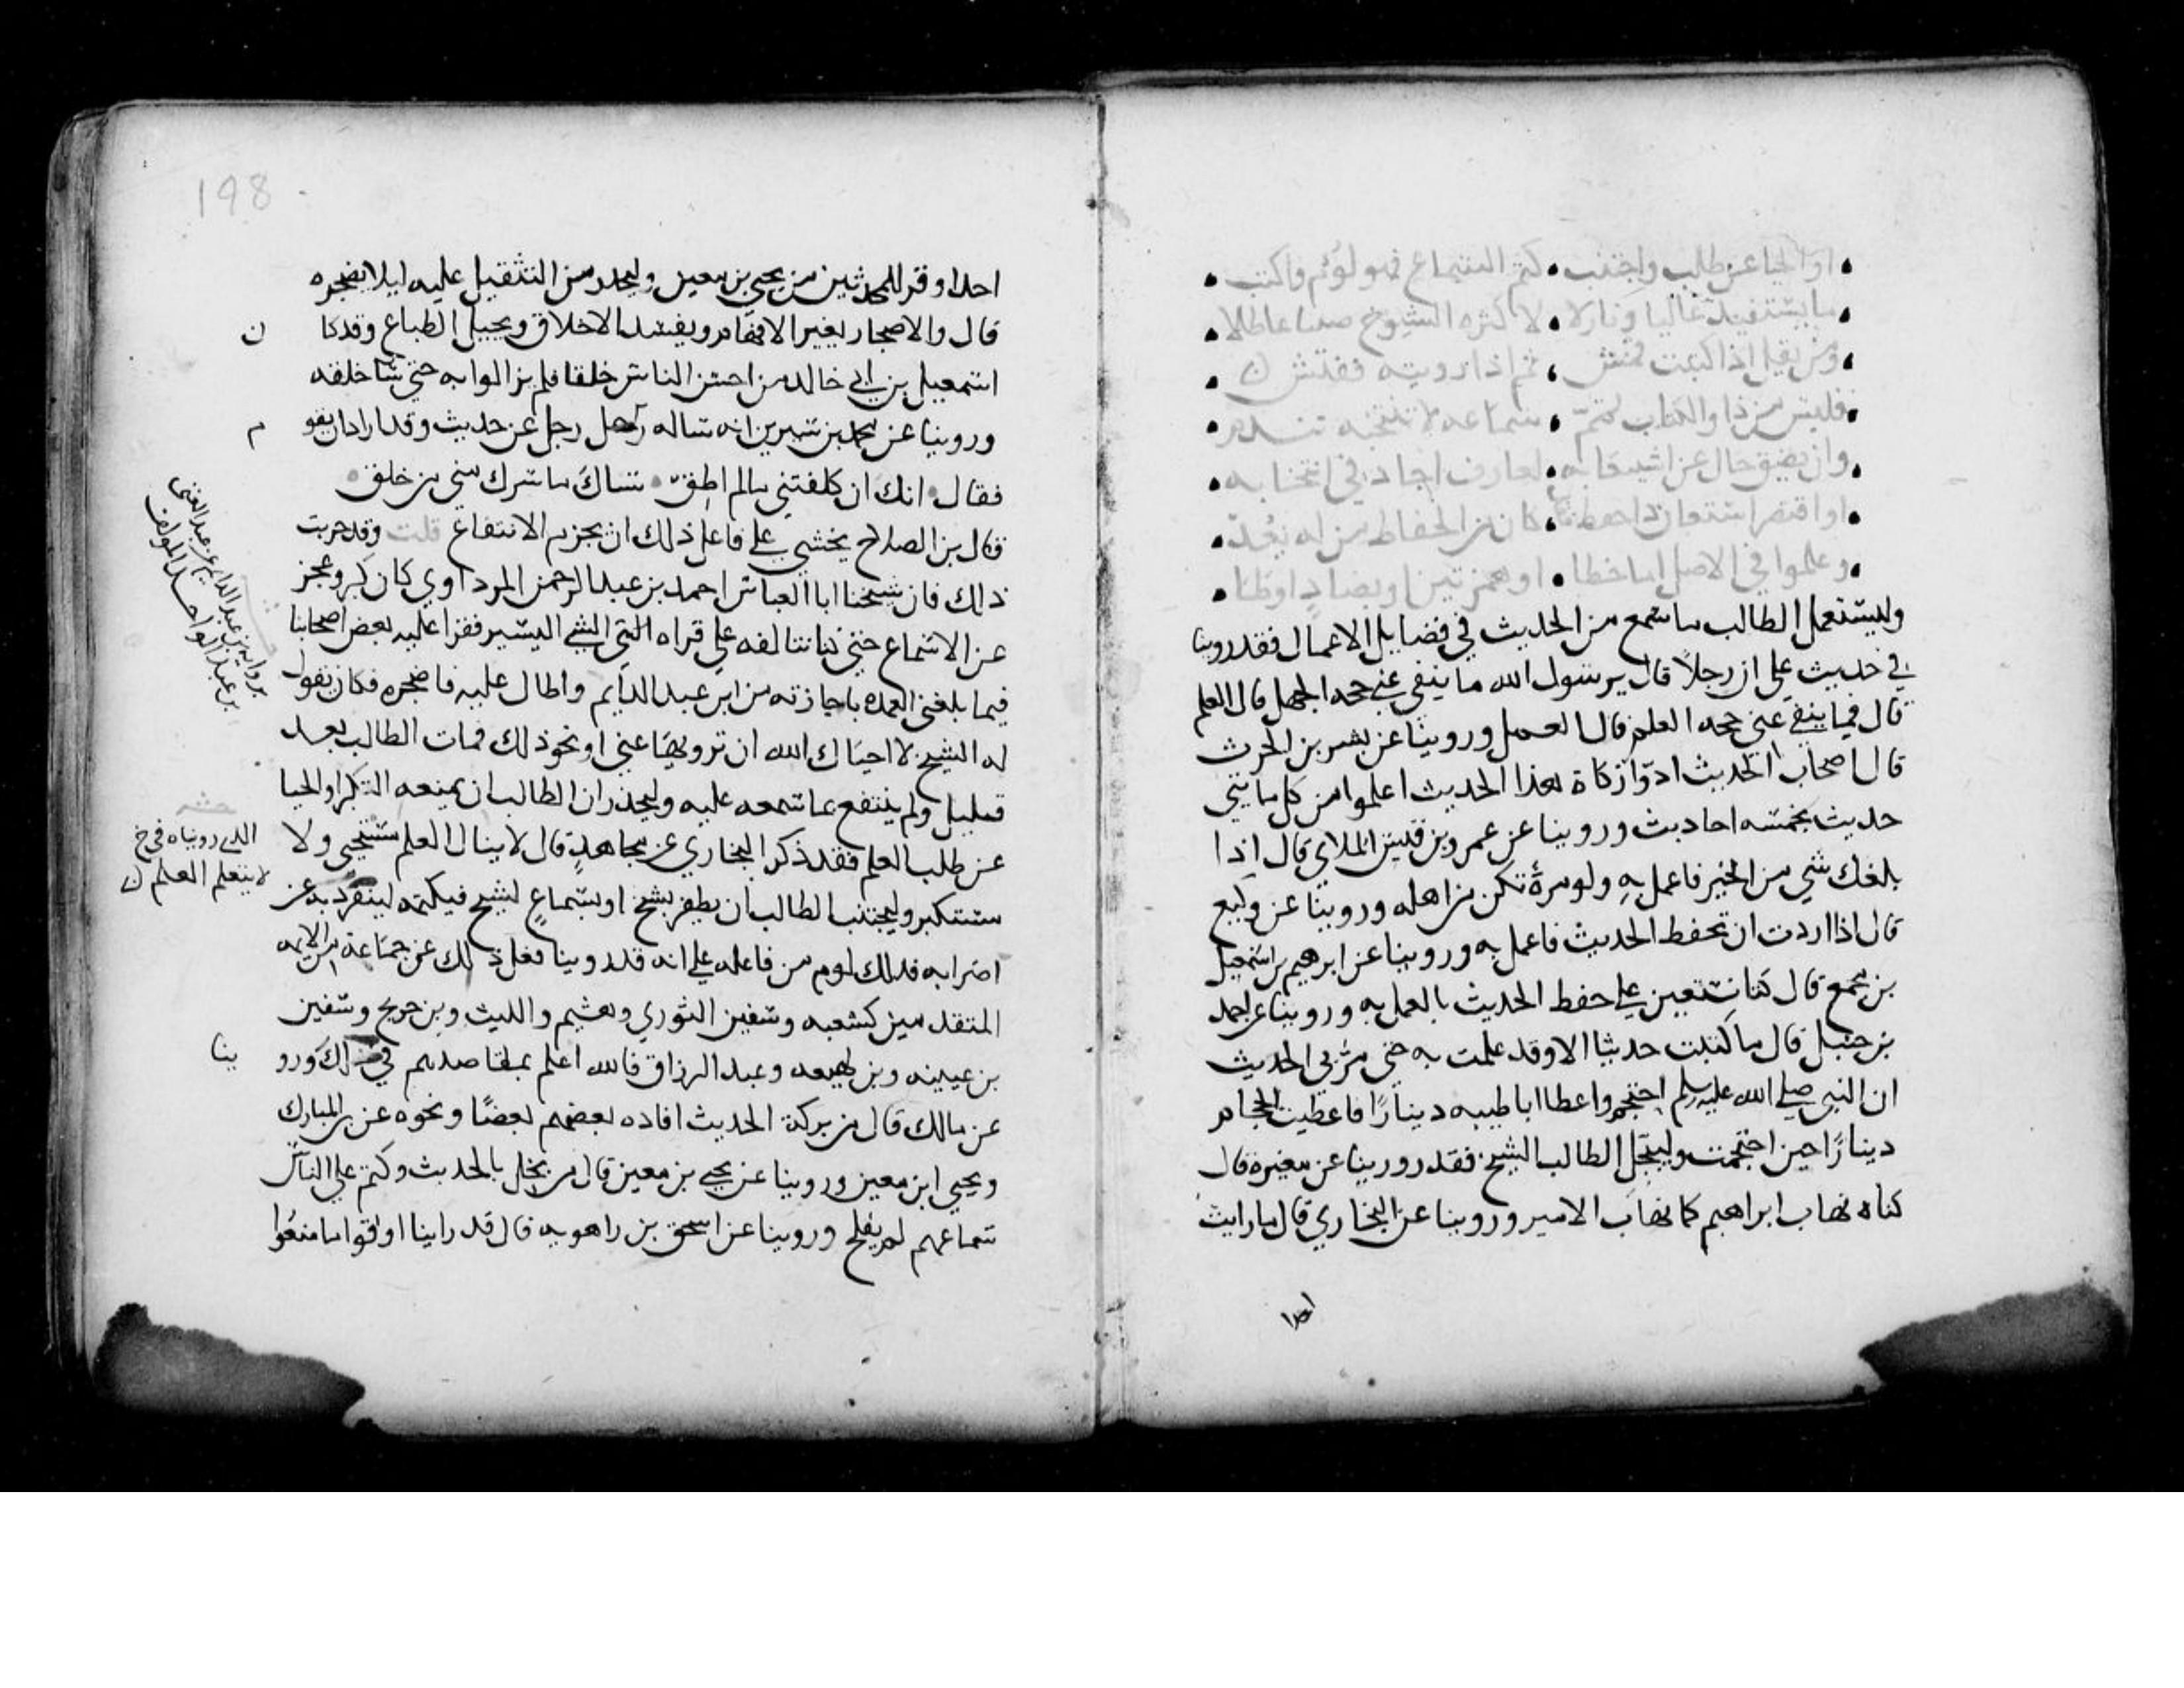 او الحيا عن طلب واجتنب • كتم السماع فهو لؤم واكتب
ما يستفيد عاليا ونازلا • لا كثرة الشيوخ صيتا عاطلا
ومن يقل اذا كتبت قمش • ثم اذا رويته ففتش
فليس من ذا والكتاب تمم • سماعه لا تنتخبه تندم
وان يضق حال عن استيعابه • لعارف اجاد في انتخابه
او اقصر استعان ذا حفظ • كان من الحفاظ من له يعد
وعلموا في الاصل اما خطا • او همزتين او بصاد او طا
وليستعمل الطالب ما سمع من الحديث في فضايل الاعمال فقد روينا
في حديث علي ان رجلا قال يرسول الله ما ينفي عني حجه الجهل قال العلم
قال فما ينفي عني حجه العلم قال العمل وروينا عن بشر بن الحرث
قال اصحاب الحديث ادوا زكاة هذا الحديث اعملوا من كل مايتي
حديث بخمسه احاديث وروينا عن عمرو بن قيس الملاي قال اذا
بلغك شي من الخير فاعمل به ولو مرة تكن من اهله وروينا عن وكيع
قال اذا اردت ان تحفظ الحديث فاعمل به وروينا عن ابرهيم بن اسمعيل
بن مجمع قال كنا نستعين على حفظ الحديث بالعمل به وروينا عن احمد
بن حنبل قال ما كتبت حديثا الا وقد عملت به حتى مر بي الحديث
ان النبي صلى الله عليه وسلم احتجم واعطا ابا طيبه دينارا فاعطيت الحجام
دينارا حين احتجمت وليبجل الطالب الشيخ فقد روينا عن مغيرة قال
كنا نهاب ابراهيم كما نهاب الامير وروينا عن البخاري قال ما رايت
احدا
198
احدا اوقر للمحدثين من يحيى بن معين وليحذر من التثقيل عليه ليلا يضجره
قال والاضجار يغير الافهام ويفسد الاخلاق ويحيل الطباع وقد كا
ن
اسمعيل بن ابي خالد من احسن الناس خلقا فلم يزالوا به حتى سا خلقه
وروينا عن محمد بن سيرين انه ساله رجل عن حديث وقد اراد ان يقو
م
فقال • انك ان كلفتني ما لم اطق • ساك ما سرك مني من خلق •
قال بن الصلاح يخشى على فاعل ذلك ان يحرم الانتفاع قلت وقد جربت
ذلك فان شيخنا ابا العباس احمد بن عبد الرحمن المرداوي كان كبر وعجز
عن الاسماع حتى كنا نتالفه على قراه الشي اليسير فقرا عليه بعض اصحابنا
فيما بلغني العمده باجازته من ابن عبد الدايم واطال عليه فاضجره فكان يقول
بروايه بن عبد الدايم عن عبد الغني
بن عبد الواحد المولف
له الشيخ لا احياك الله ان ترويها عني او نحو ذلك فمات الطالب بعد
قليل ولم ينتفع بما سمعه عليه وليحذر ان الطالب ان يمنعه التكبر او الحيا
عن طلب العلم فقد ذكر البخاري عن مجاهد قال لا ينال العلم مستحيي ولا
الذي رويناه في خ
لا يتعلم العلم
مستكبر وليجتنب الطالب ان يظفر بشيخ او بسماع لشيخ فيكتمه لينفرد به عن
اضرابه فذلك لوم من فاعله على انه قد روينا فعل ذلك عن جماعة من الايمه
المتقدمين كشعبه وسفين الثوري وهشيم والليث وبن جريج وسفين
بن عيينه وبن لهيعه وعبد الرزاق فالله اعلم بمقاصدهم في ذلك ورو
ينا
عن مالك قال من بركة الحديث افاده بعضهم بعضا ونحوه عن بن المبارك
ويحيى ابن معين وروينا عن يحيى بن معين قال من بخل بالحديث وكتم على الناس
سماعهم لم يفلح وروينا عن اسحق بن راهويه قال قد راينا اقواما منعوا